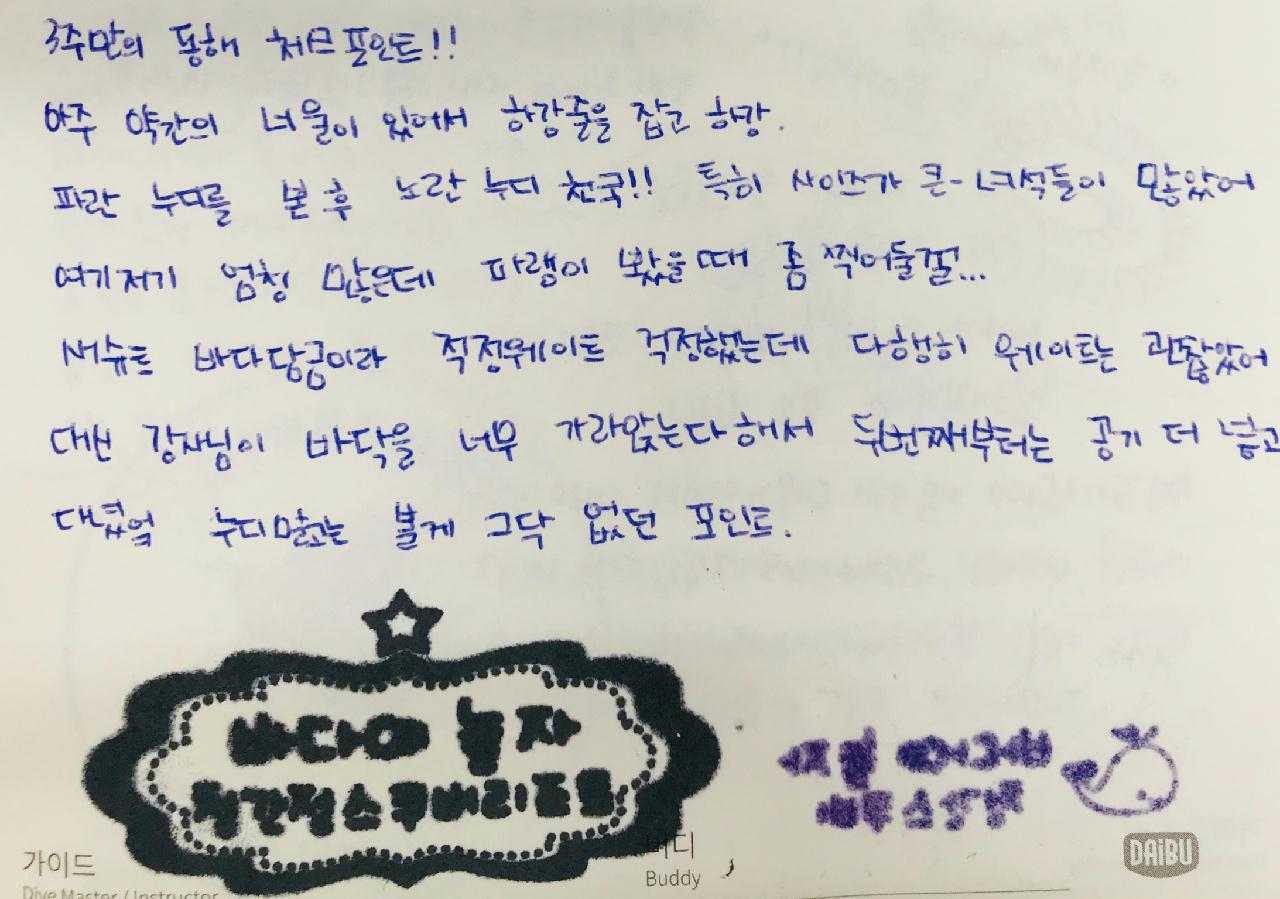 3주만의 동해 체크포인트!!
아주 약간의 너울이 있어서 하강줄을 잡고 하강.
파란 누디를 본 후 노란 누디 천국!! 특히 사이즈가 큰- 녀석들이 많았어
여기저기 엄청 많은데 파랭이 봤을때 좀 찍어둘걸...
새슈트 바다담금이라 적정웨이트 걱정했는데 다행히 웨이트는 괜찮았어
대신 강사님이 바닥을 너무 가라앉는다해서 두번째부터는 공기 더 넣고
누디말고는 볼게 그닥 없던 포인트.
바다야 놀자
스쿠버리조트
가이드
Dive Master / Instructor
버디
Buddy
DAiBU